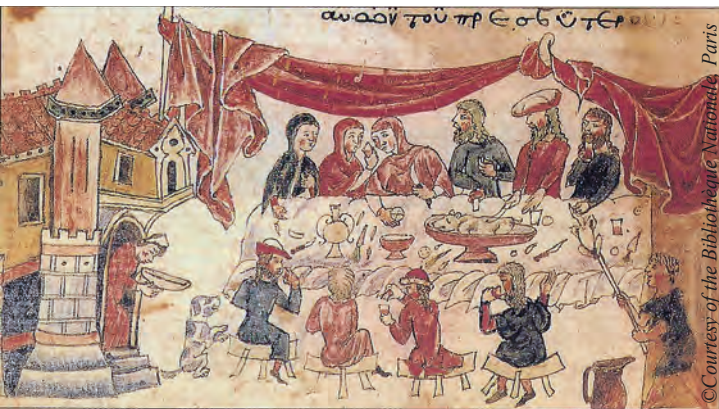 τοῦ πρεσβύτερ
©Courtesy of the Bibliothèque Nationale, Paris